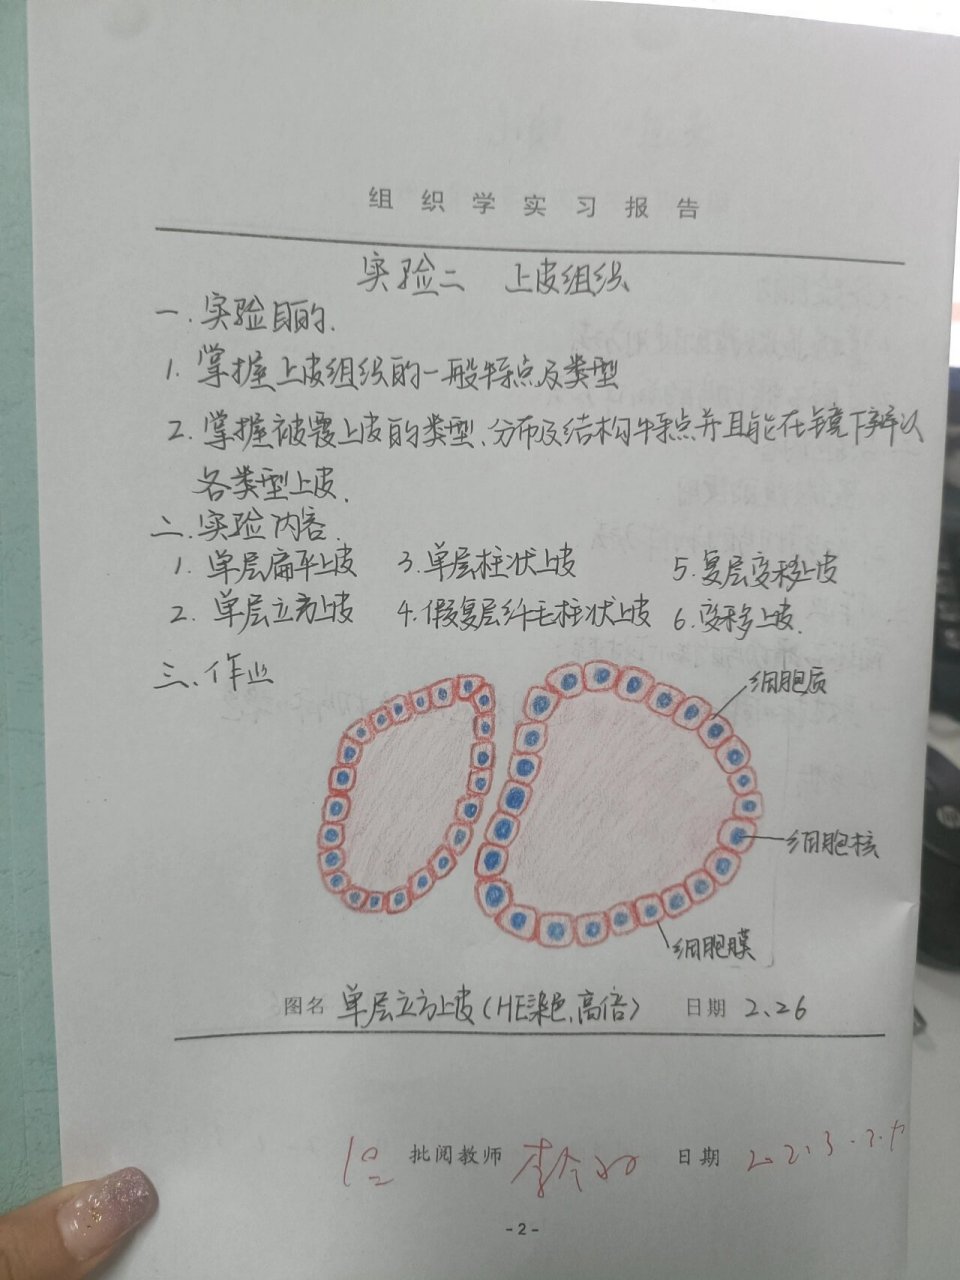 组织学实习报告
实验二 上皮组织
一.实验目的.
1.掌握上皮组织的一般特点及类型
2.掌握被覆上皮的类型、分布及结构特点并且能在镜下辨认
各类型上皮.
二.实验内容.
1.单层扁平上皮 3.单层柱状上皮 5.复层变移上皮
2.单层立方上皮 4.假复层纤毛柱状上皮 6.变移上皮.
三、作业
细胞质
细胞核
细胞膜
图名 单层立方上皮(HE染色、高倍) 日期 2、26
批阅教师 日期
-2-